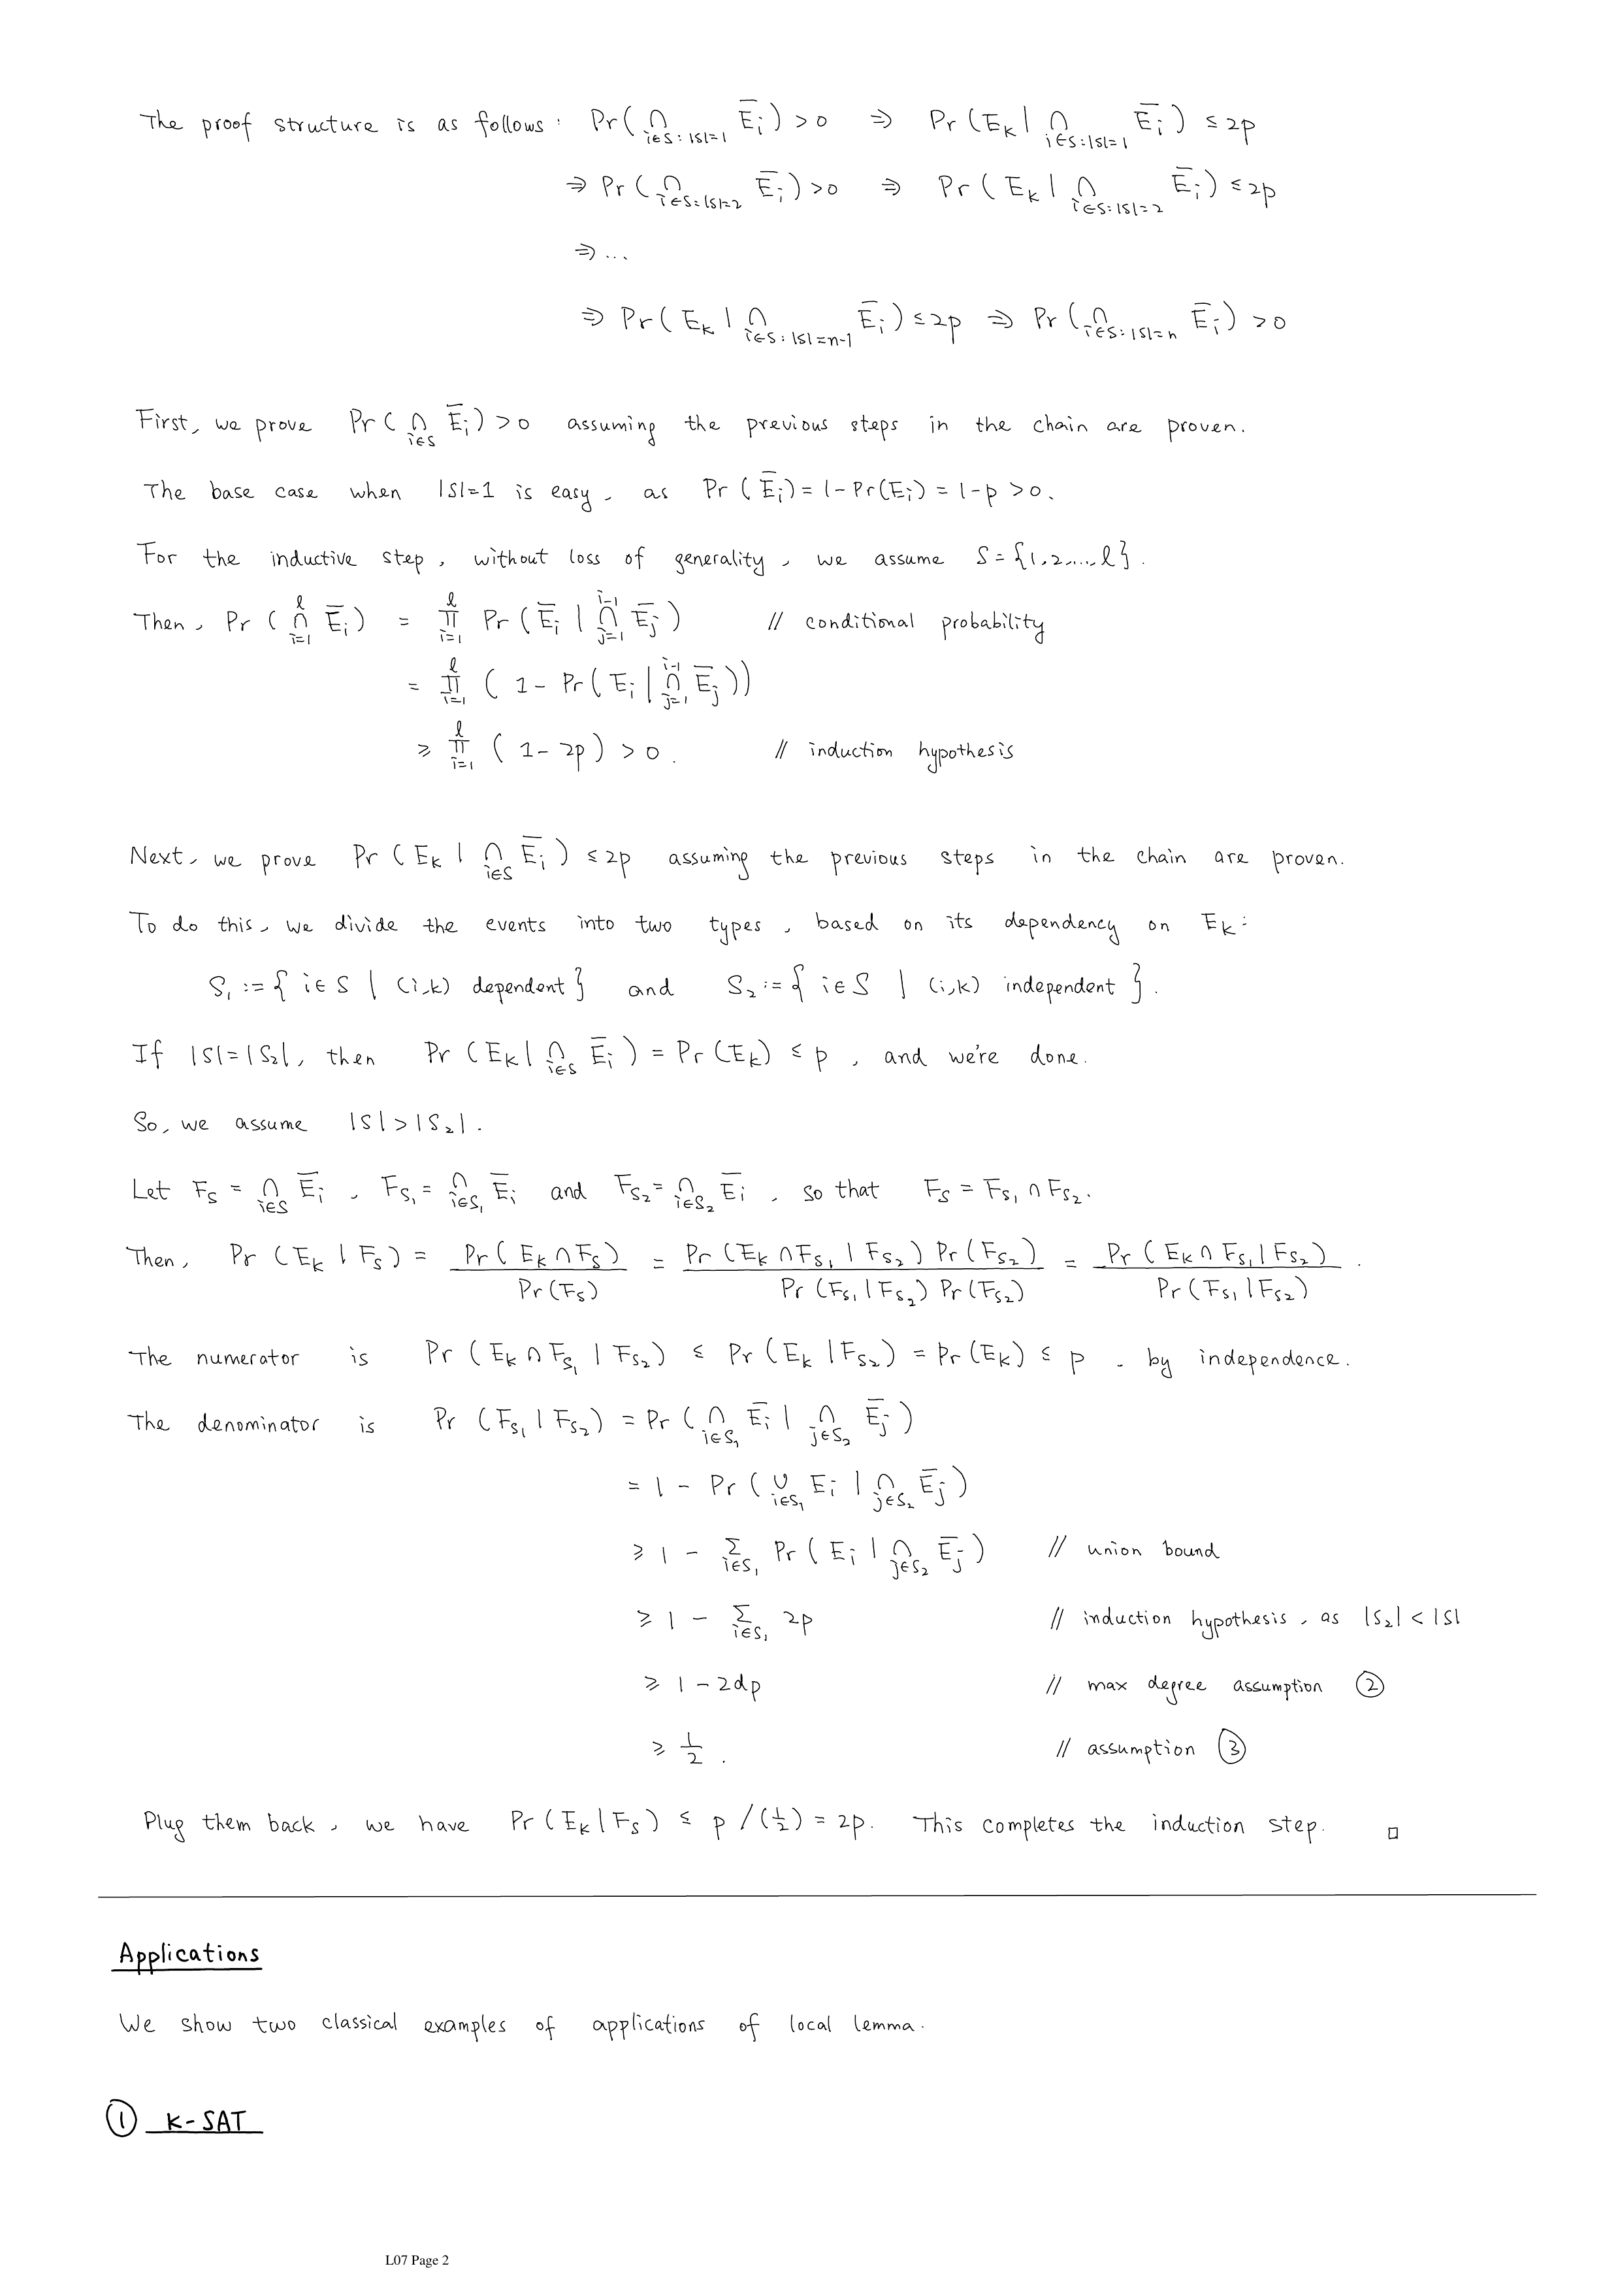 The proof structure is as follows: Pr(∩_{i∈S:|S|=1} Ēᵢ) > 0 ⇒ Pr(E_k | ∩_{i∈S:|S|=1} Ēᵢ) ≤ 2p
⇒ Pr(∩_{i∈S:|S|=2} Ēᵢ) > 0 ⇒ Pr(E_k | ∩_{i∈S:|S|=2} Ēᵢ) ≤ 2p
⇒ ...
⇒ Pr(E_k | ∩_{i∈S:|S|=n-1} Ēᵢ) ≤ 2p ⇒ Pr(∩_{i∈S:|S|=n} Ēᵢ) > 0
First, we prove Pr(∩_{i∈S} Ēᵢ) > 0 assuming the previous steps in the chain are proven.
The base case when |S|=1 is easy, as Pr(Ēᵢ) = 1-Pr(Eᵢ) = 1-p > 0.
For the inductive step, without loss of generality, we assume S = {1,2,...,l}.
Then, Pr(∩_{i=1}^{l} Ēᵢ) = ∏_{i=1}^{l} Pr(Ēᵢ | ∩_{j=1}^{i-1} Ēⱼ) // conditional probability
= ∏_{i=1}^{l} (1 - Pr(Eᵢ | ∩_{j=1}^{i-1} Ēⱼ))
≥ ∏_{i=1}^{l} (1-2p) > 0. // induction hypothesis
Next, we prove Pr(E_k | ∩_{i∈S} Ēᵢ) ≤ 2p assuming the previous steps in the chain are proven.
To do this, we divide the events into two types, based on its dependency on E_k:
S₁ := {i∈S | (i,k) dependent} and S₂ := {i∈S | (i,k) independent}.
If |S|=|S₂|, then Pr(E_k | ∩_{i∈S} Ēᵢ) = Pr(E_k) ≤ p, and we're done.
So, we assume |S|>|S₂|.
Let F_S = ∩_{i∈S} Ēᵢ, F_{S₁} = ∩_{i∈S₁} Ēᵢ and F_{S₂} = ∩_{i∈S₂} Ēᵢ, so that F_S = F_{S₁} ∩ F_{S₂}.
Then, Pr(E_k | F_S) = Pr(E_k ∩ F_S) / Pr(F_S) = Pr(E_k ∩ F_{S₁} | F_{S₂}) Pr(F_{S₂}) / Pr(F_{S₁} | F_{S₂}) Pr(F_{S₂}) = Pr(E_k ∩ F_{S₁} | F_{S₂}) / Pr(F_{S₁} | F_{S₂}).
The numerator is Pr(E_k ∩ F_{S₁} | F_{S₂}) ≤ Pr(E_k | F_{S₂}) = Pr(E_k) ≤ p, by independence.
The denominator is Pr(F_{S₁} | F_{S₂}) = Pr(∩_{i∈S₁} Ēᵢ | ∩_{j∈S₂} Ēⱼ)
= 1 - Pr(∪_{i∈S₁} Eᵢ | ∩_{j∈S₂} Ēⱼ)
≥ 1 - Σ_{i∈S₁} Pr(Eᵢ | ∩_{j∈S₂} Ēⱼ) // union bound
≥ 1 - Σ_{i∈S₁} 2p // induction hypothesis, as |S₂| < |S|
≥ 1 - 2dp // max degree assumption ②
≥ 1/2. // assumption ③
Plug them back, we have Pr(E_k | F_S) ≤ p/(1/2) = 2p. This completes the induction step. □
Applications
We show two classical examples of applications of local lemma.
① k-SAT
L07 Page 2